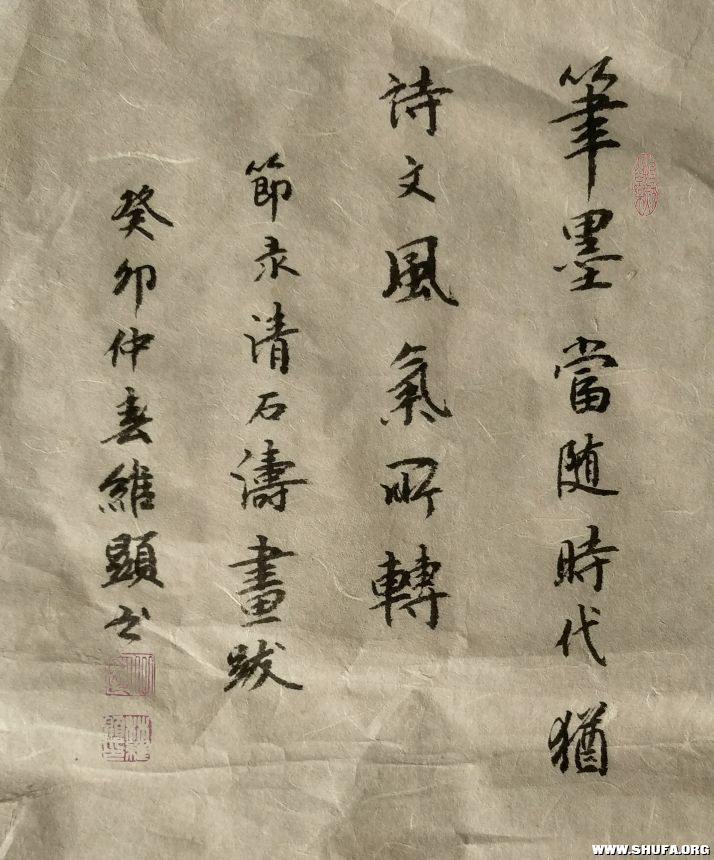 筆墨當随時代猶
詩文風氣所轉
節录清石濤畫跋
癸卯仲春維顯书
WWW.SHUFA.ORG